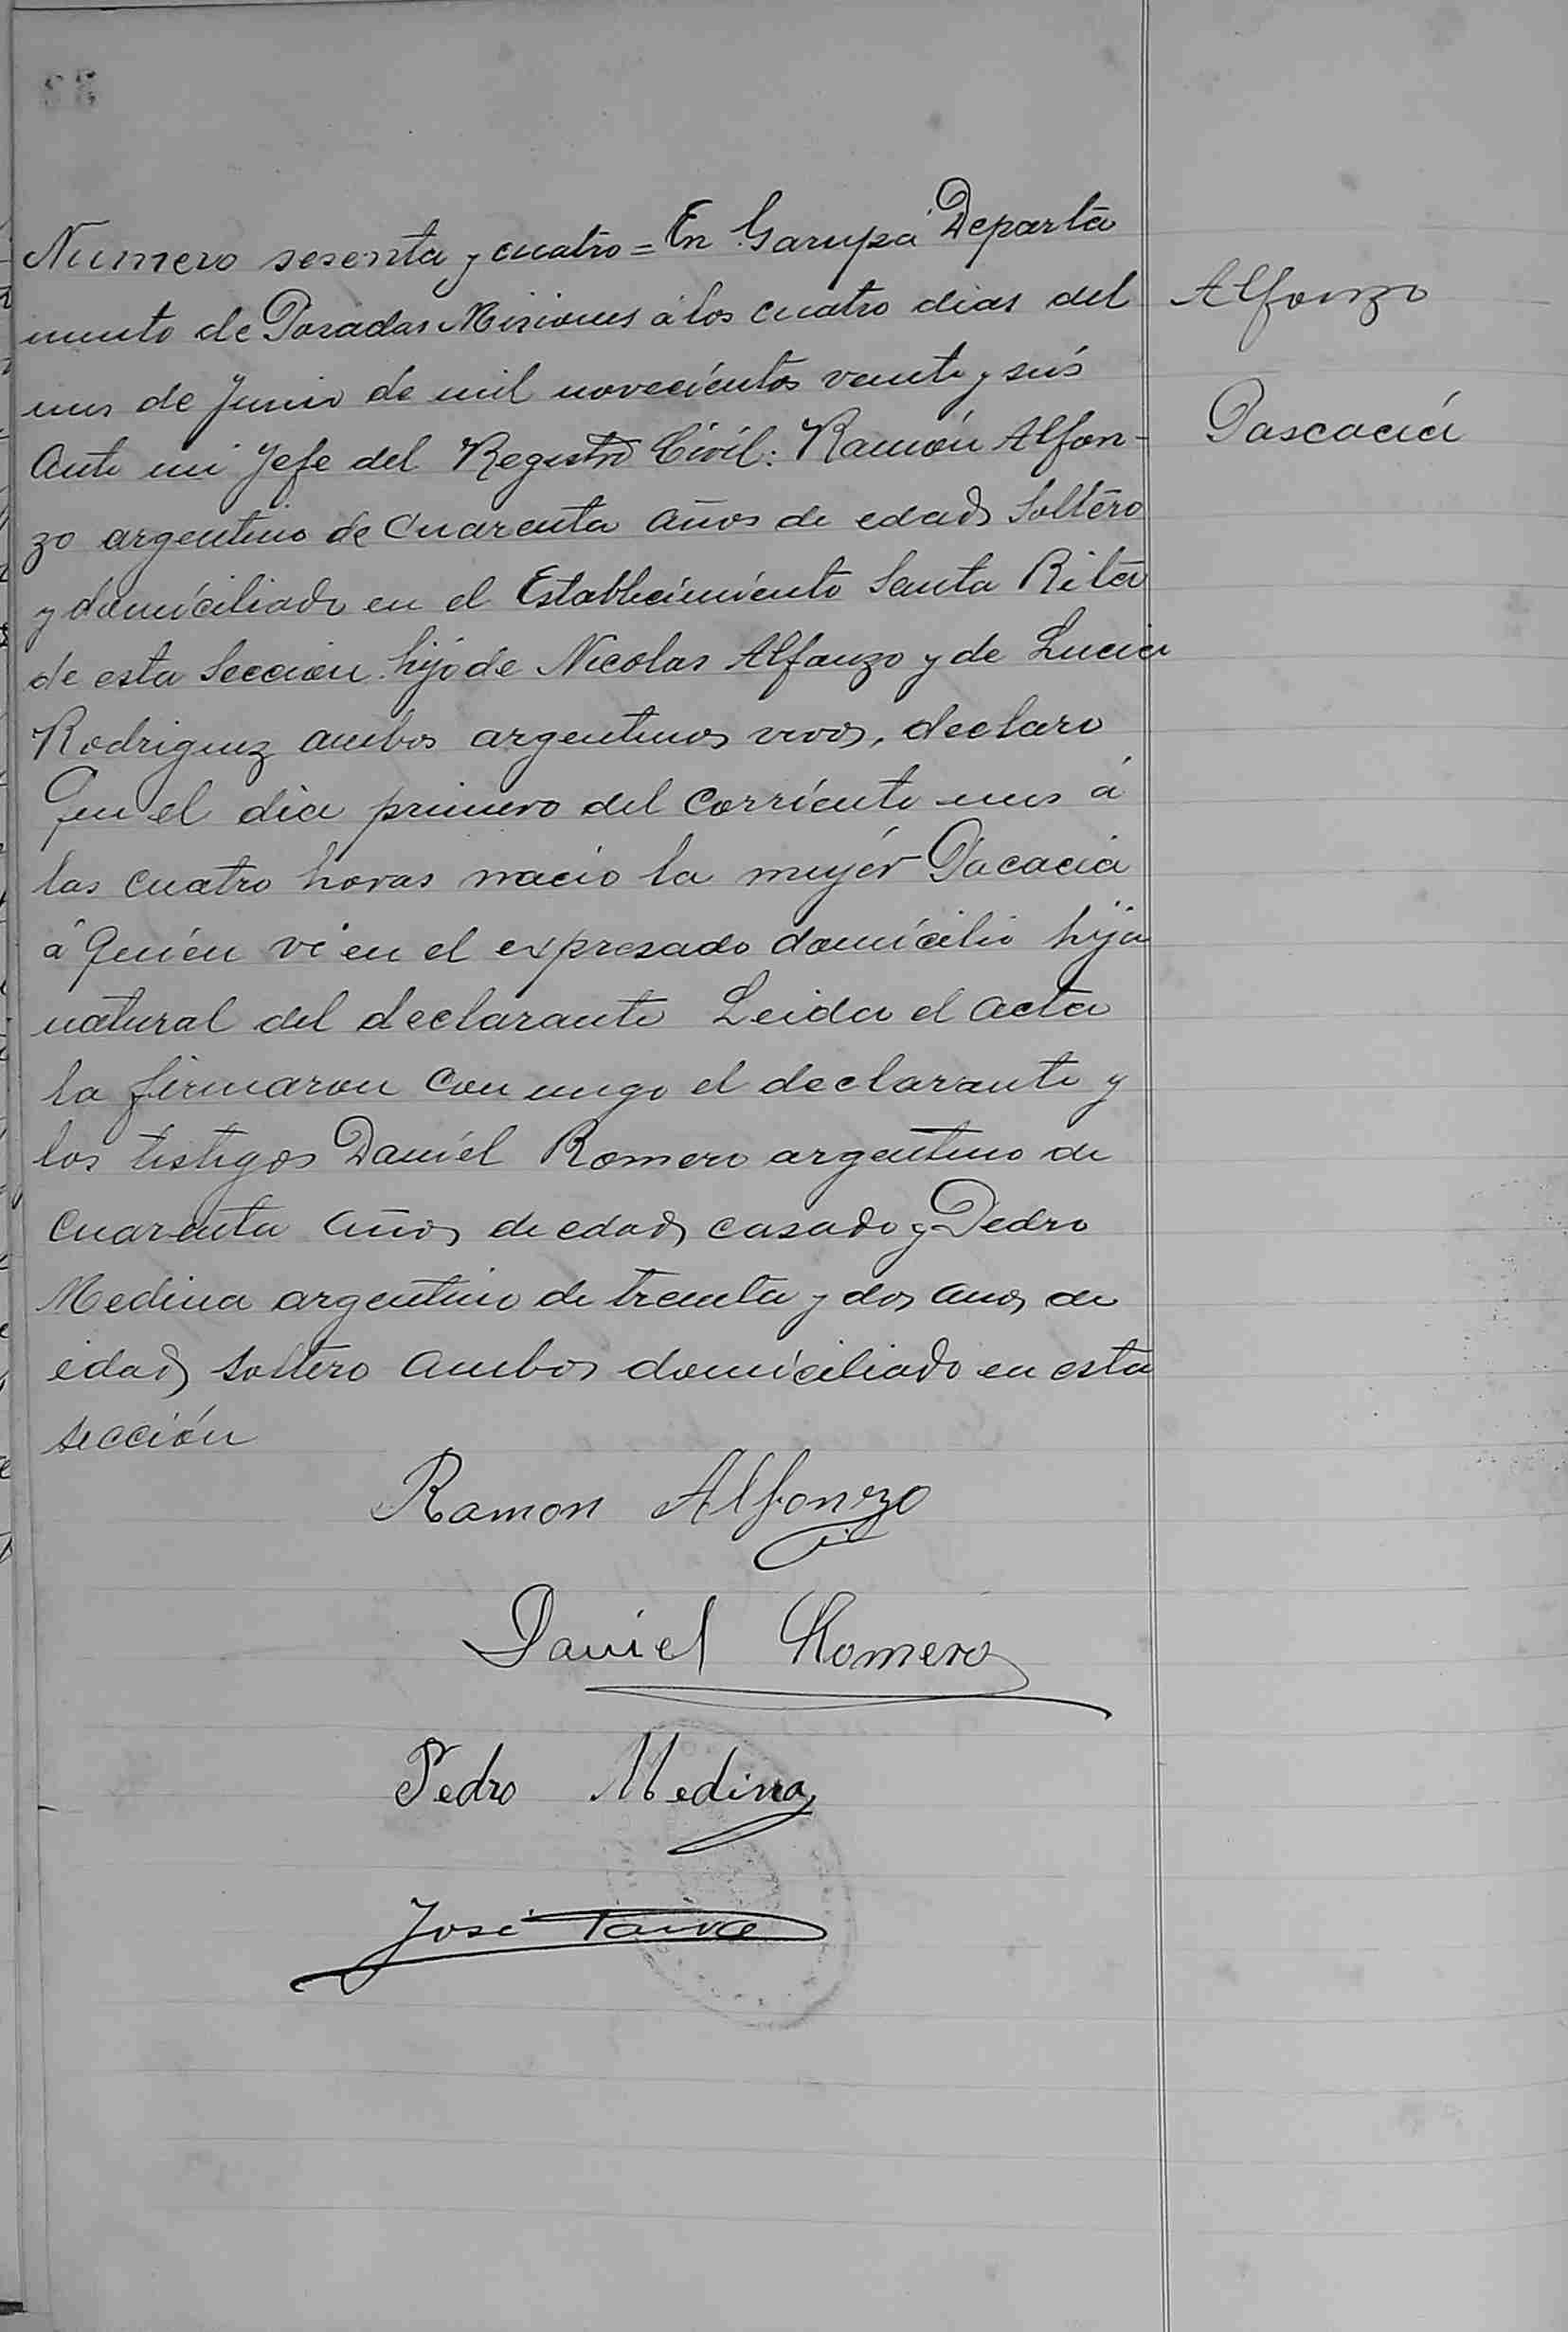 Numero sesenta y cuatro = En Garupa Departa
mento de Posadas Misiones á los cuatro dias del
mes de Junio de mil novecientos veinte y seis
Ante mi Jefe del Registro Civil: Ramón Alfon-
zo argentino de cuarenta años de edad soltero
y domiciliado en el Establecimiento Santa Rita
de esta Seccion hijo de Nicolas Alfonzo y de Lucia
Rodriguez ambos argentinos vivos, declaro
Que el dia primero del corriente mes á
las cuatro horas nacio la mujer Pacacia
á Quien vi en el expresado domicilio hija
natural del declarante Leida el acta
la firmaron con migo el declarante y
los testigos Daniel Romero argentino de
cuarenta años de edad casado y Pedro
Medina argentino de treinta y dos años de
edad soltero ambos domiciliado en esta
sección
Alfonzo
Pascacia
Ramon Alfonzo
Daniel Romero
Pedro Medina
José Paiva